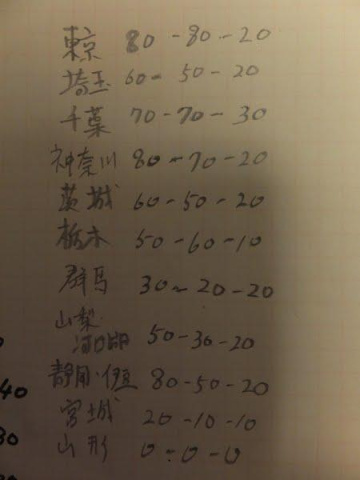 東京 80-80-20
埼玉 60-50-20
千葉 70-70-30
神奈川 80-70-20
茨城 60-50-20
栃木 50-60-10
群馬 30-20-20
山梨
河口湖 50-30-20
静岡・伊豆 80-50-20
宮城 20-10-10
山形 0-0-0
40
30